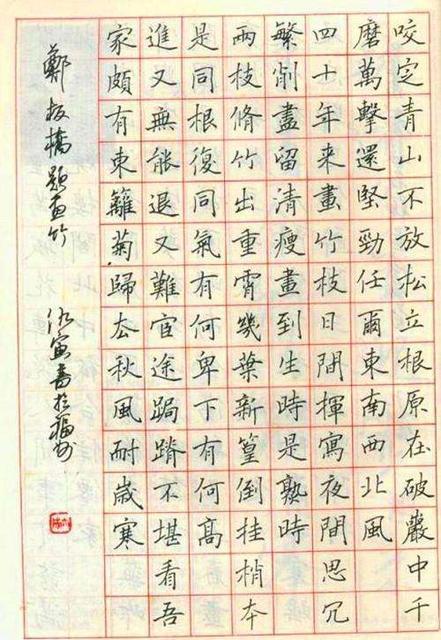 咬定青山不放松立根原在破巖中千
磨萬擊還堅勁任爾東南西北風
四十年來畫竹枝日間揮寫夜間思冗
繁削盡留清瘦畫到生時是熟時
兩枝脩竹出重霄幾葉新篁倒挂梢本
是同根復同氣有何卑下有何高
進又無能退又難官途跼蹐不堪看吾
家頗有東籬菊歸去秋風耐歲寒
鄭板橋題画竹 仇寅書於福州